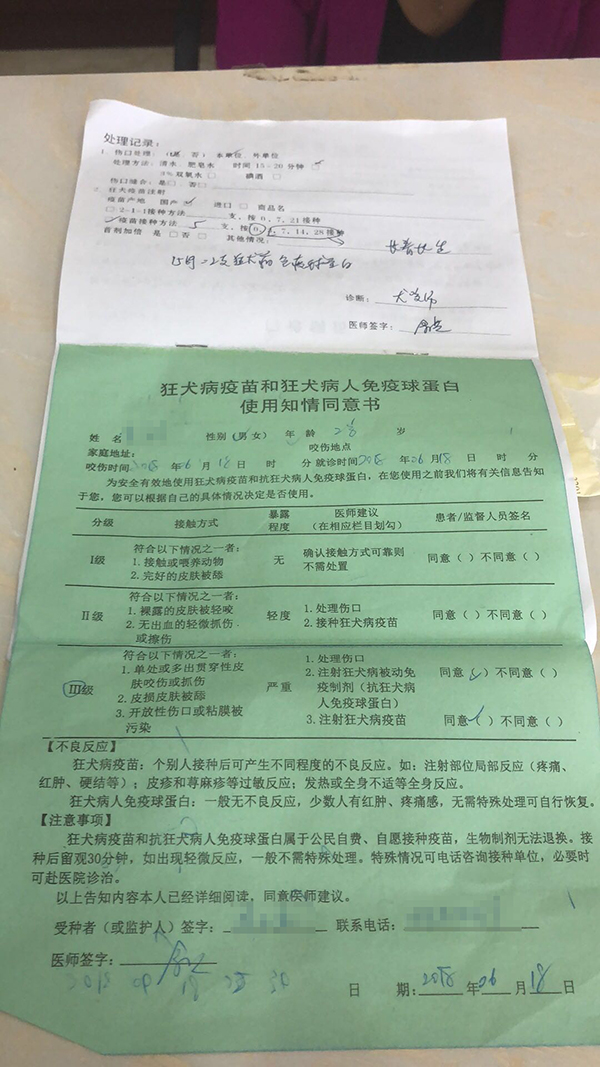 处理记录：
1. 伤口处理：（是 否） 本单位 外单位
处理方法：清水 肥皂水 时间 15-20分钟 ✓
3%双氧水□ 碘酒□
伤口缝合：是□ 否□
2. 狂犬疫苗注射
疫苗产地 国产 ✓ 进口□ 商品名
□ 2-1-1接种方法 支，按0、7、21接种
✓ 疫苗接种方法 5 支，按0、3、7、14、28接种
首剂加倍 是□ 否□ 其他情况：
长春长生
诊断：
医师签字：
狂犬病疫苗和狂犬病人免疫球蛋白
使用知情同意书
姓 名 性别（男 女） 年 龄 岁
家庭地址： 咬伤地点
咬伤时间 2018 年 06 月 18 日 时 分 就诊时间 2018 年 06 月 18 日 时 分
为安全有效地使用狂犬病疫苗和抗狂犬病人免疫球蛋白，在您使用之前我们将有关信息告知
于您，您可以根据自己的具体情况决定是否使用。
分级 接触方式 暴露程度 医师建议（在相应栏目划勾） 患者/监督人员签名
符合以下情况之一者：
I级 1. 接触或喂养动物 无 确认接触方式可靠则 同意（ ）不同意（ ）
2. 完好的皮肤被舔 不需处置
符合以下情况之一者：
II级 1. 裸露的皮肤被轻咬 轻度 1. 处理伤口 同意（ ）不同意（ ）
2. 无出血的轻微抓伤 2. 接种狂犬病疫苗
或擦伤
符合以下情况之一者： 1. 处理伤口
1. 单处或多出贯穿性皮 2. 注射狂犬病被动免 同意（✓）不同意（ ）
肤咬伤或抓伤 疫制剂（抗狂犬病
III级 2. 皮损皮肤被舔 严重 人免疫球蛋白）
3. 开放性伤口或粘膜被 3. 注射狂犬病疫苗 同意（✓）不同意（ ）
污染
【不良反应】
狂犬病疫苗：个别人接种后可产生不同程度的不良反应。如：注射部位局部反应（疼痛、
红肿、硬结等）；皮疹和荨麻疹等过敏反应；发热或全身不适等全身反应。
狂犬病人免疫球蛋白：一般无不良反应，少数人有红肿、疼痛感，无需特殊处理可自行恢复。
【注意事项】
狂犬病疫苗和抗狂犬病人免疫球蛋白属于公民自费、自愿接种疫苗，生物制剂无法退换。接
种后留观30分钟，如出现轻微反应，一般不需特殊处理。特殊情况可电话咨询接种单位，必要时
可赴医院诊治。
以上告知内容本人已经详细阅读，同意医师建议。
受种者（或监护人）签字： 联系电话：
医师签字：
日 期：2018 年 06 月 18 日